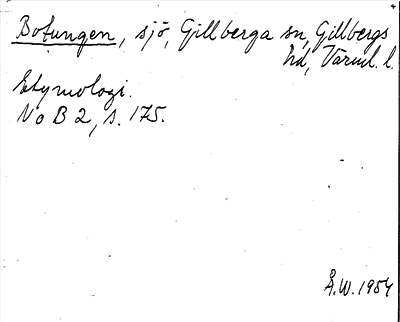 Botungen, sjö, Gillberga sn, Gillbergs
hd, Värml. l.
Etymologi.
NoB 2, s. 175.
Å.W. 1954